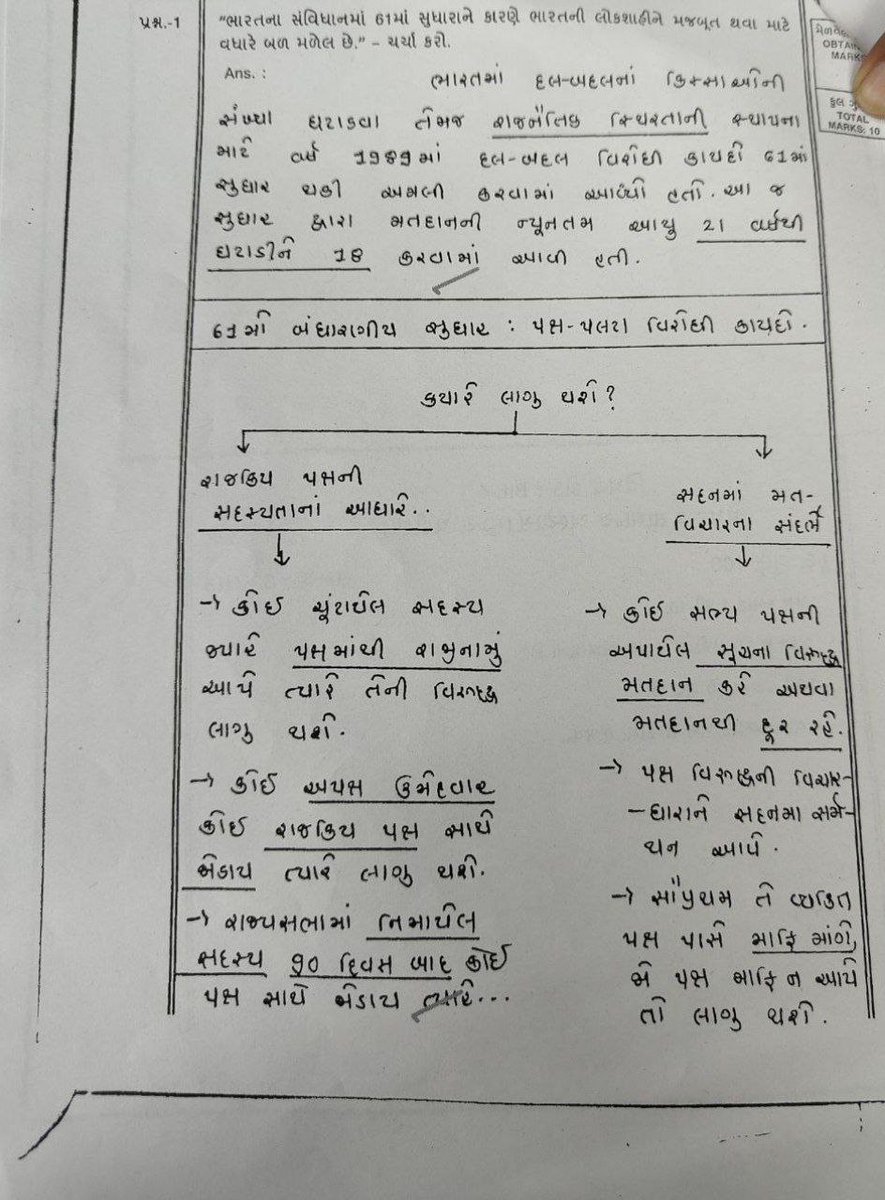 પ્રશ્ન.-1 "ભારતના સંવિધાનમાં 61માં સુધારાને કારણે ભારતની લોકશાહીને મજબૂત થવા માટે
વધારે બળ મળેલ છે." – ચર્ચા કરો.
OBTAI
MARKS
કુલ ગુ
TOTAL
MARKS: 10
Ans. :
ભારતમાં દલ-બદલનાં કિસ્સાઓની
સંખ્યા ઘટાડવા તેમજ રાજનૈતિક સ્થિરતાની સ્થાપના
માટે વર્ષ 1989માં દલ-બદલ વિરોધી કાયદો 61માં
સુધાર થકી અમલી કરવામાં આવ્યો હતો. આ જ
સુધાર દ્વારા મતદાનની ન્યૂનતમ આયુ 21 વર્ષથી
ઘટાડીને 18 કરવામાં આવી હતી.
61મો બંધારણીય સુધાર : પક્ષ-પલટા વિરોધી કાયદો.
ક્યારે લાગુ થશે?
રાજકિય પક્ષની
સદસ્યતાનાં આધારે..
→ કોઈ ચૂંટાયેલ સદસ્ય
જ્યારે પક્ષમાંથી રાજીનામું
આપે ત્યારે તેની વિરૂદ્ધ
લાગુ થશે.
→ કોઈ અપક્ષ ઉમેદવાર
કોઈ રાજકિય પક્ષ સાથે
જોડાય ત્યારે લાગુ થશે.
→ રાજ્યસભામાં નિમાયેલ
સદસ્ય 90 દિવસ બાદ કોઈ
પક્ષ સાથે જોડાય ત્યારે...
સદનમાં મત-
વિચારના સંદર્ભે
→ કોઈ સભ્ય પક્ષની
અપાયેલ સૂચના વિરૂદ્ધ
મતદાન કરે અથવા
મતદાનથી દૂર રહે.
→ પક્ષ વિરૂદ્ધની વિચાર-
-ધારાને સદનમાં સર્મ-
થન આપે.
→ સૌપ્રથમ તે વ્યકિત
પક્ષ પાસે માફિ માંગે,
જો પક્ષ માફિ ન આપે
તો લાગુ થશે.